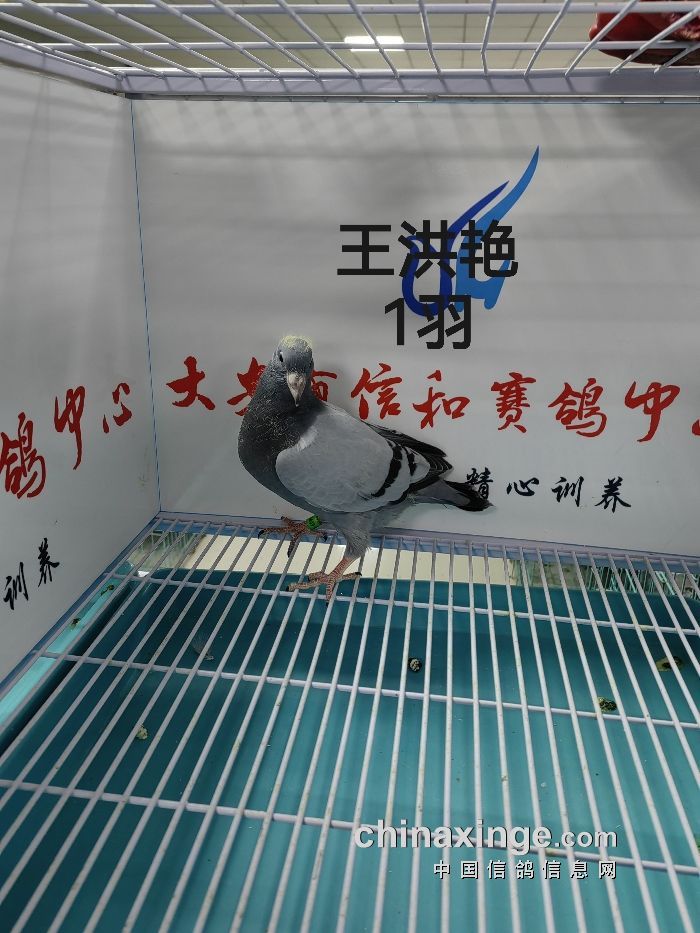 王洪艳
1羽
鸽中心
大 信和赛鸽中
训养
精心训养
chinaxinge.com
中国信鸽信息网